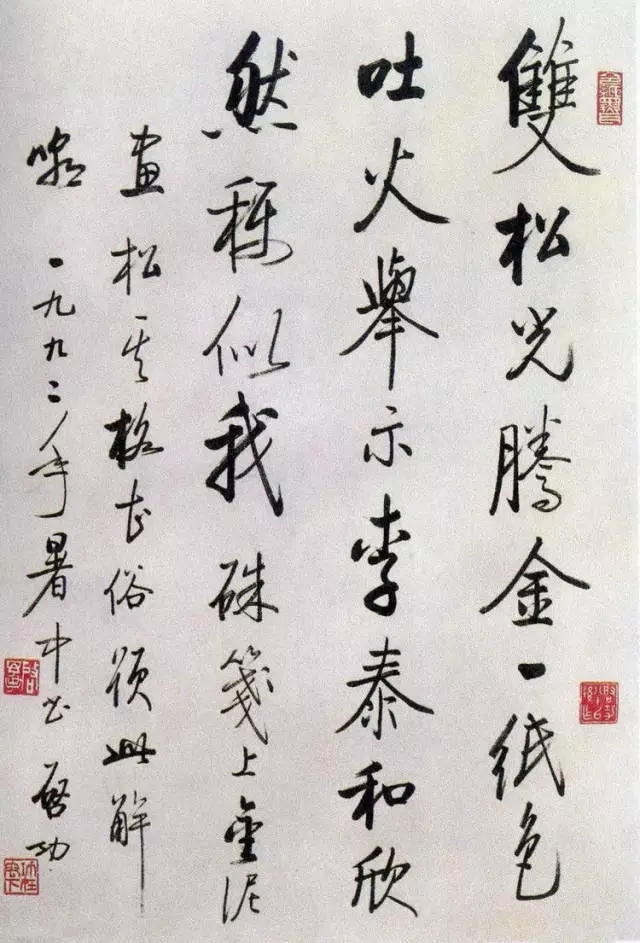 雙松光騰金一紙色
吐火舉示李泰和欣
然稱似我硃箋上金泥
畫松其格甚俗題此解
嘲一九九二年暑中書啓功